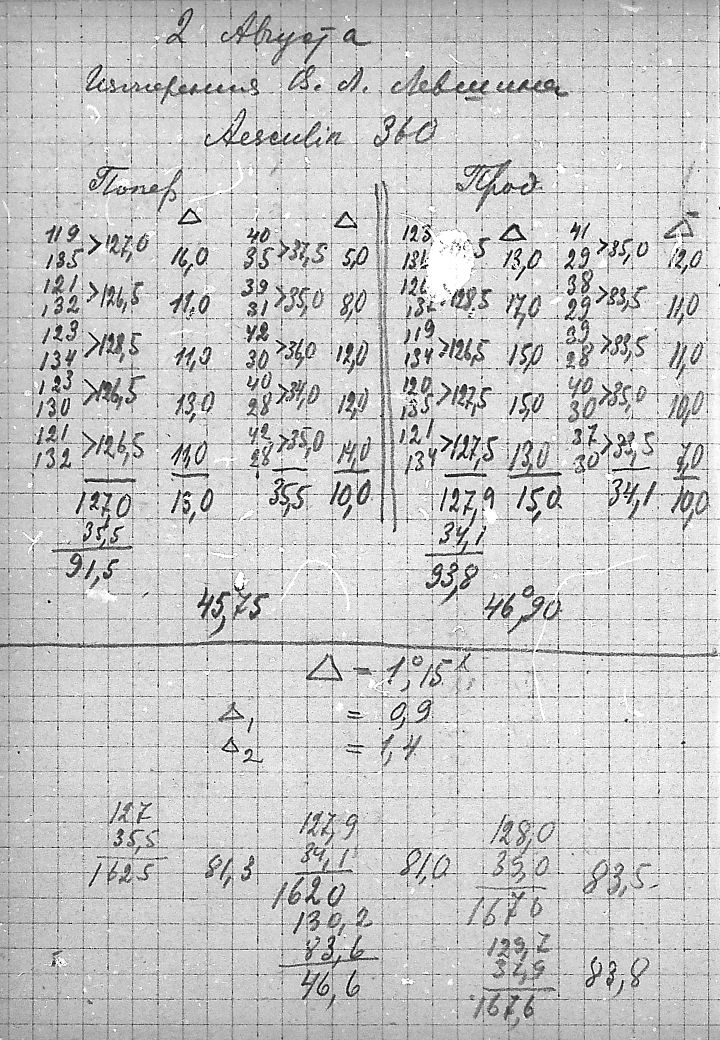 2 Августа
Измерения В. Л. Левшина
Aesculin 360
Попер Прод
Δ Δ Δ Δ
119 40 123 41
>127,0 16,0 >37,5 5,0 13,0 >35,0 12,0
135 35 29
121 39 38
>126,5 11,0 >35,0 8,0 >128,5 17,0 >33,5 11,0
132 31 29
123 42 119 39
>128,5 11,0 >36,0 12,0 >126,5 15,0 >33,5 11,0
134 30 134 28
123 40 120 40
>126,5 13,0 >34,0 12,0 >127,5 15,0 >35,0 10,0
130 28 135 30
121 42 121 37
>126,5 11,0 >35,0 14,0 >127,5 13,0 >33,5 7,0
132 28 134 30
127,0 13,0 35,5 10,0 127,9 15,0 34,1 10,0
35,5 34,1
91,5 93,8
45,°75 46,°90
Δ = 1,°15
Δ₁ = 0,9
Δ₂ = 1,4
127 127,9 128,0
35,5 34,1 39,0
1625 81,3 1620 81,0 1670 83,5
130,2 129,7
83,6 37,9
46,6 167,6 83,8